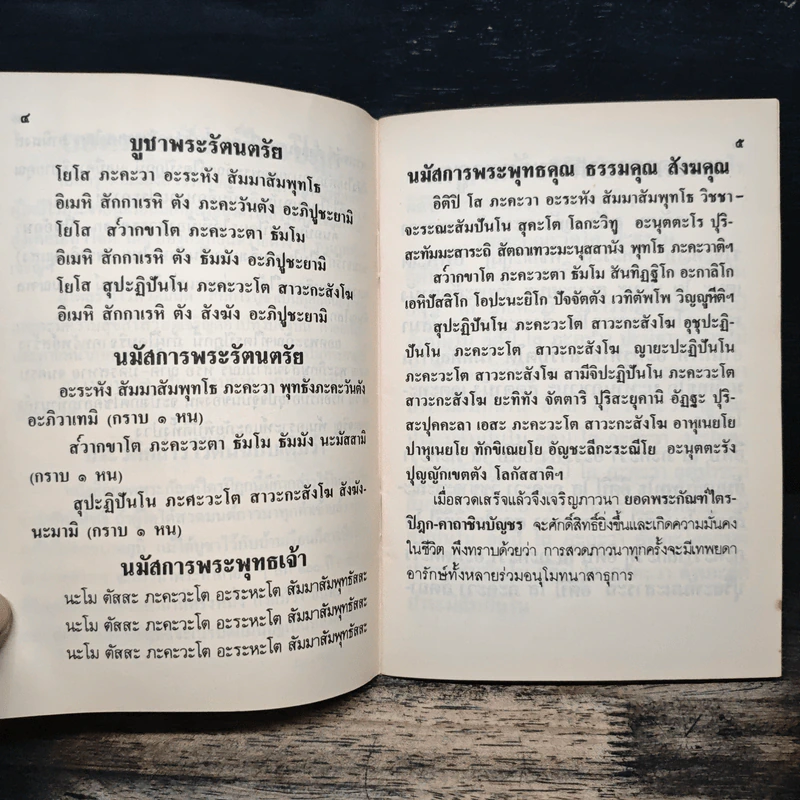 ๔
บูชาพระรัตนตรัย
โยโส ภะคะวา อะระหัง สัมมาสัมพุทโธ
อิเมหิ สักกาเรหิ ตัง ภะคะวันตัง อะภิปูชะยามิ
โยโส ส๎วากขาโต ภะคะวะตา ธัมโม
อิเมหิ สักกาเรหิ ตัง ธัมมัง อะภิปูชะยามิ
โยโส สุปะฏิปันโน ภะคะวะโต สาวะกะสังโฆ
อิเมหิ สักกาเรหิ ตัง สังฆัง อะภิปูชะยามิ
นมัสการพระรัตนตรัย
อะระหัง สัมมาสัมพุทโธ ภะคะวา พุทธังภะคะวันตัง
อะภิวาเทมิ (กราบ ๑ หน)
ส๎วากขาโต ภะคะวะตา ธัมโม ธัมมัง นะมัสสามิ
(กราบ ๑ หน)
สุปะฏิปันโน ภะคะวะโต สาวะกะสังโฆ สังฆัง-
นะมามิ (กราบ ๑ หน)
นมัสการพระพุทธเจ้า
นะโม ตัสสะ ภะคะวะโต อะระหะโต สัมมาสัมพุทธัสสะ
นะโม ตัสสะ ภะคะวะโต อะระหะโต สัมมาสัมพุทธัสสะ
นะโม ตัสสะ ภะคะวะโต อะระหะโต สัมมาสัมพุทธัสสะ
๕
นมัสการพระพุทธคุณ ธรรมคุณ สังฆคุณ
อิติปิ โส ภะคะวา อะระหัง สัมมาสัมพุทโธ วิชชา-
จะระณะสัมปันโน สุคะโต โลกะวิทู อะนุตตะโร ปุริ-
สะทัมมะสาระถิ สัตถาเทวะมะนุสสานัง พุทโธ ภะคะวาติฯ
ส๎วากขาโต ภะคะวะตา ธัมโม สันทิฏฐิโก อะกาลิโก
เอหิปัสสิโก โอปะนะยิโก ปัจจัตตัง เวทิตัพโพ วิญญูหีติฯ
สุปะฏิปันโน ภะคะวะโต สาวะกะสังโฆ อุชุปะฏิ-
ปันโน ภะคะวะโต สาวะกะสังโฆ ญายะปะฏิปันโน
ภะคะวะโต สาวะกะสังโฆ สามีจิปะฏิปันโน ภะคะวะโต
สาวะกะสังโฆ ยะทิทัง จัตตาริ ปุริสะยุคานิ อัฏฐะ ปุริ-
สะปุคคะลา เอสะ ภะคะวะโต สาวะกะสังโฆ อาหุเนยโย
ปาหุเนยโย ทักขิเณยโย อัญชะลีกะระณีโย อะนุตตะรัง
ปุญญักเขตตัง โลกัสสาติฯ
เมื่อสวดเสร็จแล้วจึงเจริญภาวนา ยอดพระกัณฑ์ไตร-
ปิฎก-คาถาชินบัญชร จะศักดิ์สิทธิ์ยิ่งขึ้นและเกิดความมั่นคง
ในชีวิต พึงทราบด้วยว่า การสวดภาวนาทุกครั้งจะมีเทพยดา
อารักษ์ทั้งหลายร่วมอนุโมทนาสาธุการ